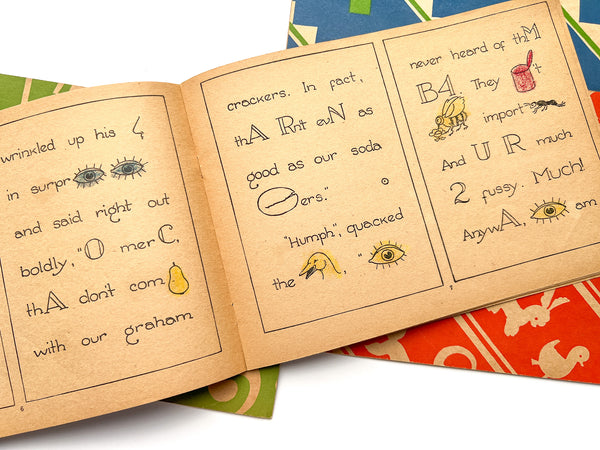 wrinkled up his
in surpr
and said right out
boldly, "O merC,
thA don't com
with our graham
6
crackers. In fact,
thA Rnt evN as
good as our soda
ers."
"Humph", quacked
the , "
never heard of thM
B4. They 't
import
And U R much
2 fussy. Much!
AnywA, am
7